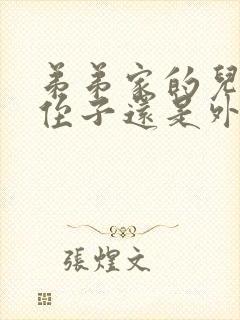 弟弟家的兒
侄子還是外
張煌文